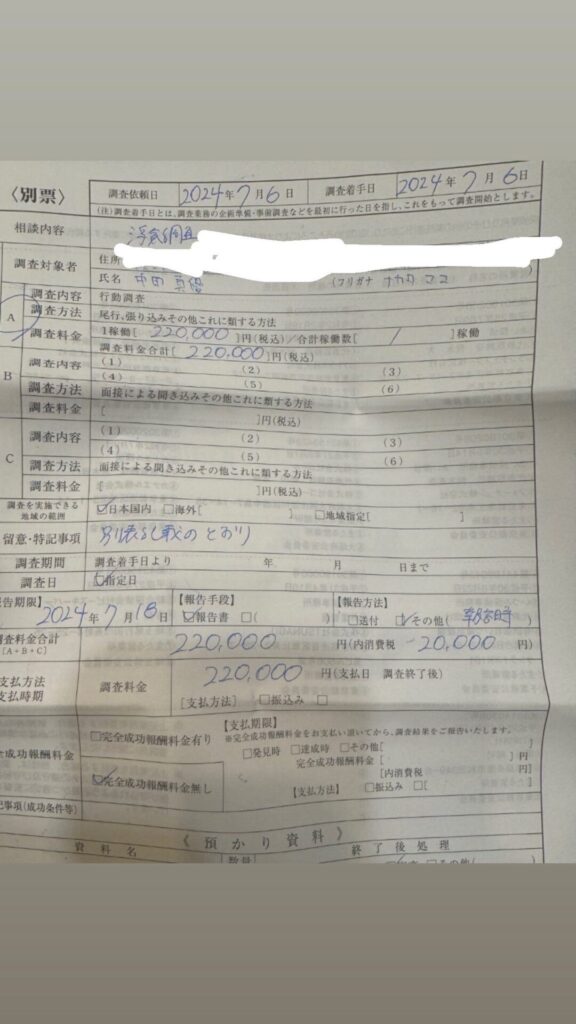 〈別票〉
調査依頼日 2024年7月6日 調査着手日 2024年7月6日
(注)調査着手日とは、調査業務の企画準備・事前調査などを最初に行った日を指し、これをもって調査開始とします。
相談内容 浮気調査
調査対象者 住所
氏名 (フリガナ ナカタ マユ
A 調査内容 行動調査
調査方法 尾行、張り込みその他これに類する方法
調査料金 1稼働[ 220,000 ]円(税込)/合計稼働数[ / ]稼働
調査料金合計[ 220,000 ]円(税込)
B 調査内容 (1) (2) (3)
(4) (5) (6)
調査方法 面接による聞き込みその他これに類する方法
調査料金 [ ]円(税込)
C 調査内容 (1) (2) (3)
(4) (5) (6)
調査方法 面接による聞き込みその他これに類する方法
調査料金 [ ]円(税込)
調査を実施できる地域の範囲 ☑日本国内 □海外[ ] □地域指定[ ]
留意・特記事項 別表記載のとおり
調査期間 調査着手日より 年 月 日まで
調査日 ☑指定日
報告期限】 2024年7月18日 【報告手段】 ☑報告書 □( ) 【報告方法】 □送付 ☑その他( )
調査料金合計 [A+B+C] 220,000 円(内消費税 20,000 円)
支払方法 支払時期 調査料金 220,000 円(支払日 調査終了後)
[支払方法] □振込み □
完全成功報酬料金 □完全成功報酬料金有り 【支払期限】
※完全成功報酬料金をお支払い頂いてから、調査結果をご報告いたします。
□発見時 □達成時 □その他[ ]
完全成功報酬料金[ ]円
[内消費税 円]
☑完全成功報酬料金無し 【支払方法】 □振込み □[ ]
記事項(成功条件等)
《預かり資料》
資料名 数量 終了後処理